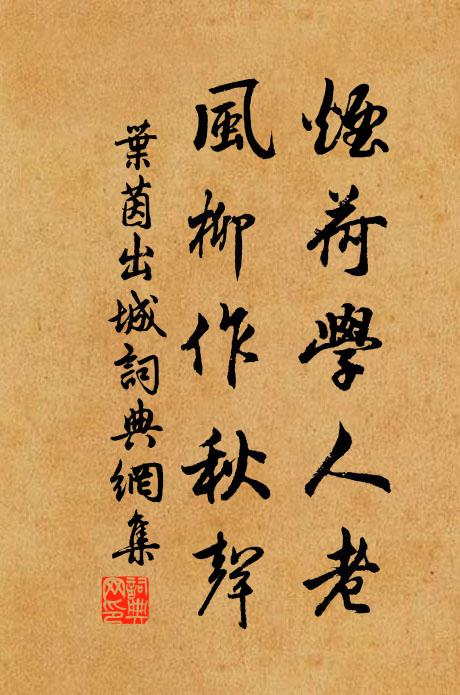 煙荷學人老
風柳作秋聲
葉茵出城詞典網集
詞典网印